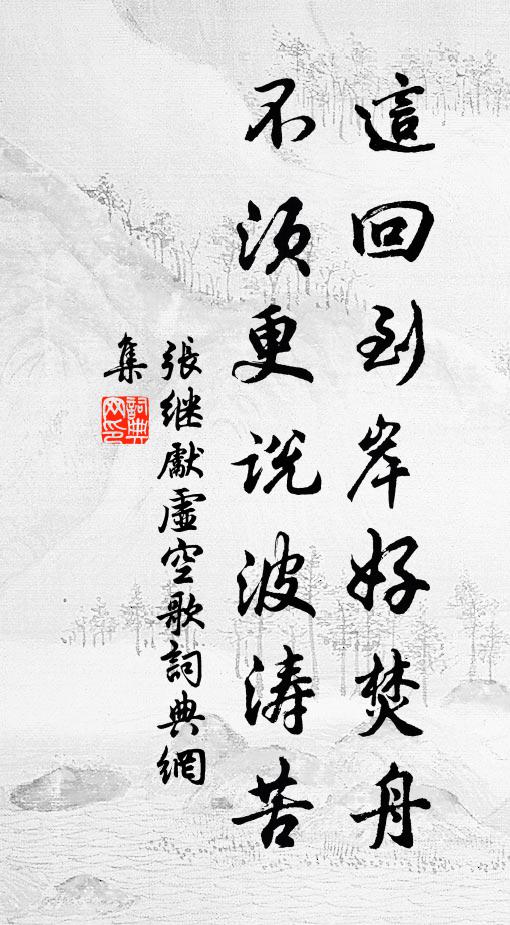 這回到岸好焚舟
不須更說波濤苦
張继獻虛空歌詞典網
集
詞典網印